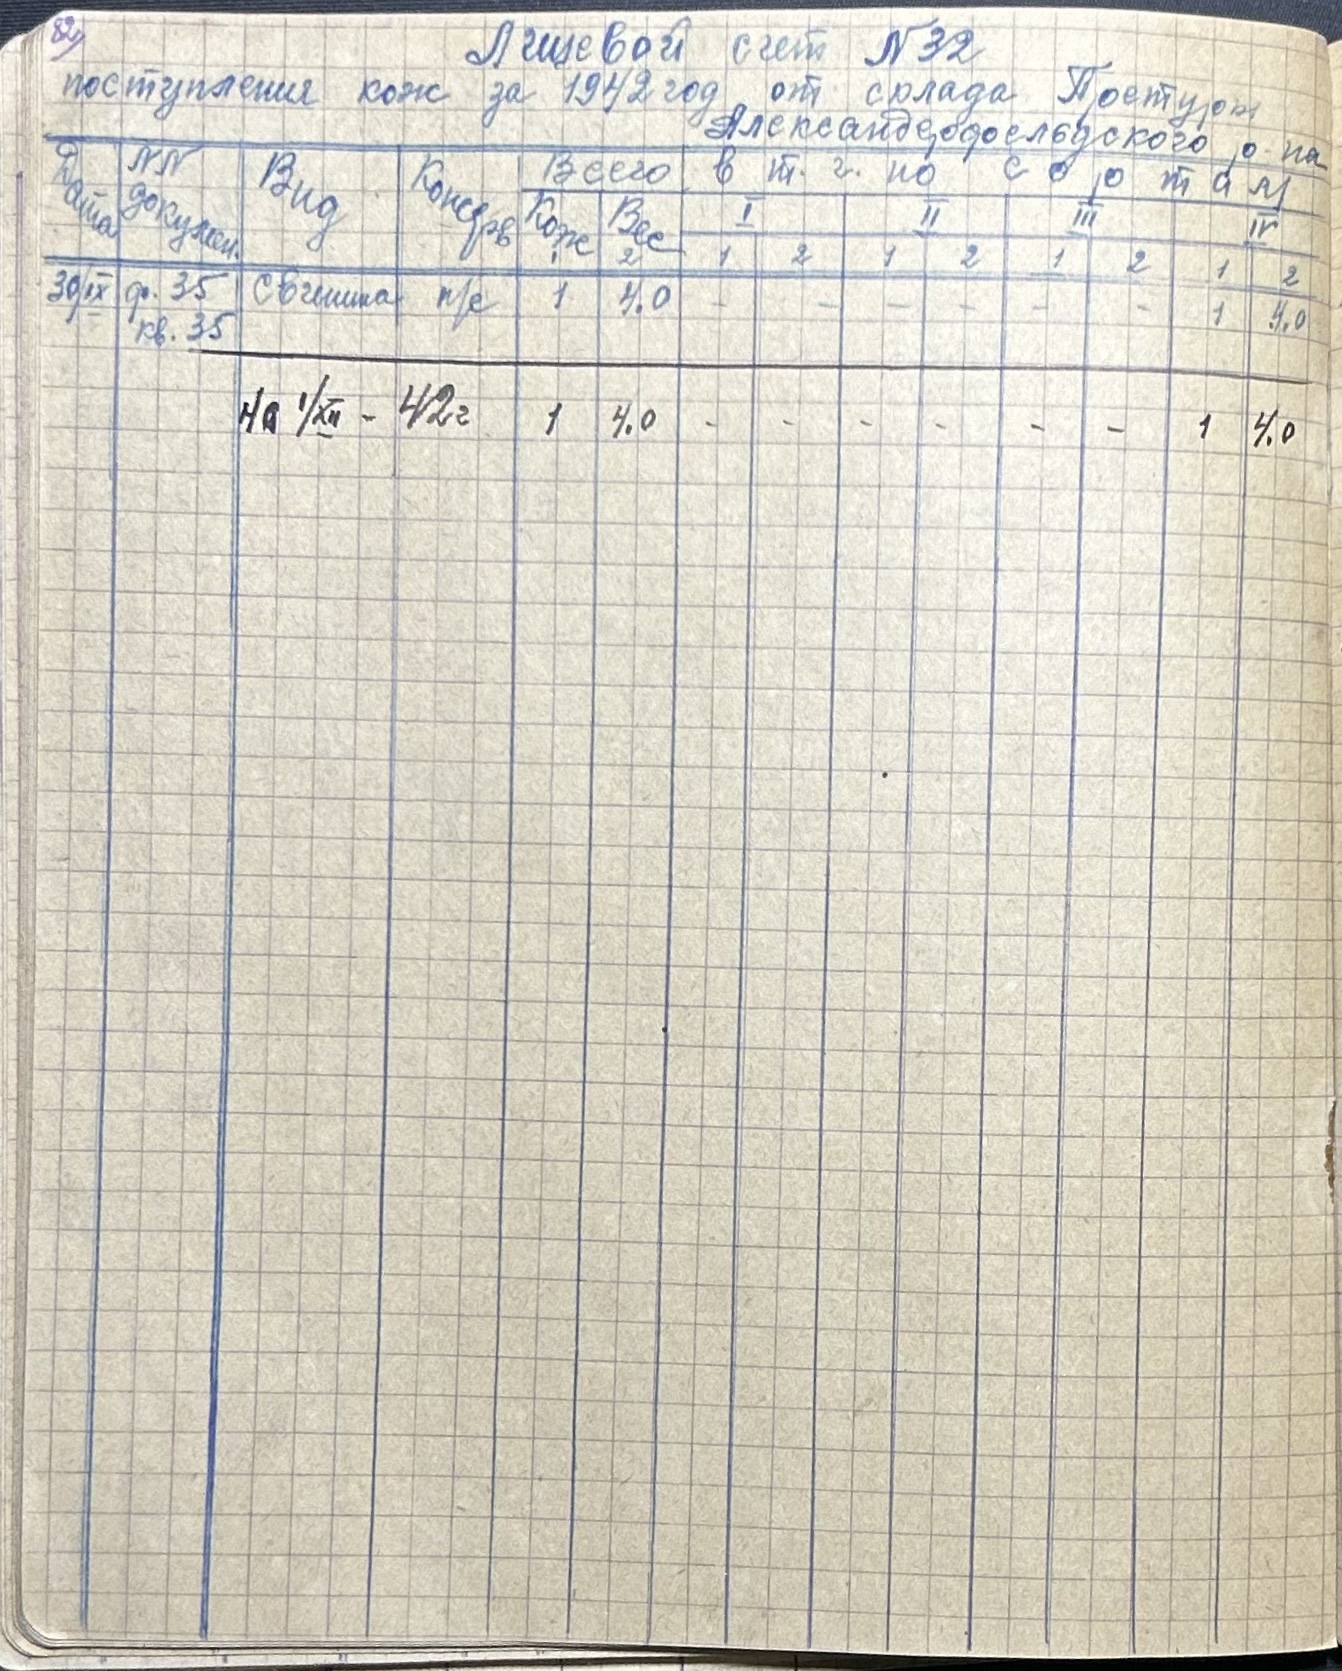 82
Лицевой счет N 32
поступления кож за 1942 год от склада
Александродорского р-на
Дата NN докумен. Вид Консерв Всего в т. ч. по сортам
Кож Вес I II III IV
1 2 1 2 1 2 1 2 1 2
30/IX ф. 35 Свинина п/с 1 4.0 - - - - - - 1 4.0
кв. 35
на 1/XII - 42г 1 4.0 - - - - - - 1 4.0